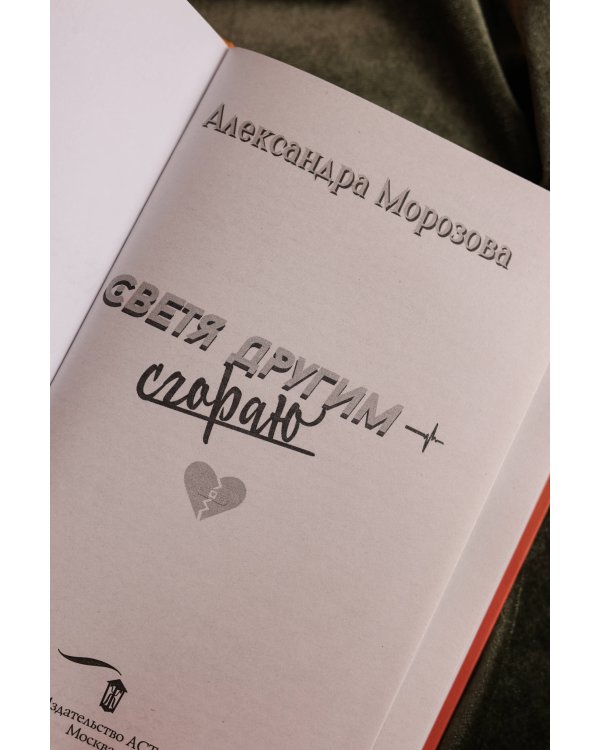 Александра Морозова
СВЕТЯ ДРУГИМ
сгораю
Ж
Издательство АСТ
Москва